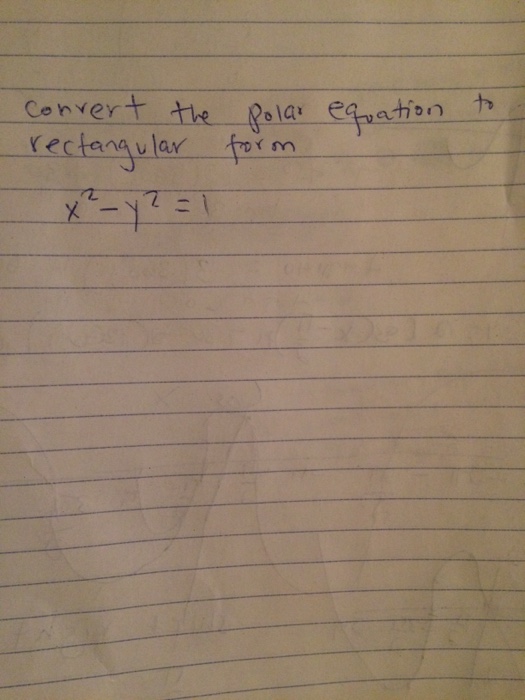 convert the polar equation to
rectangular form
x² - y² = 1